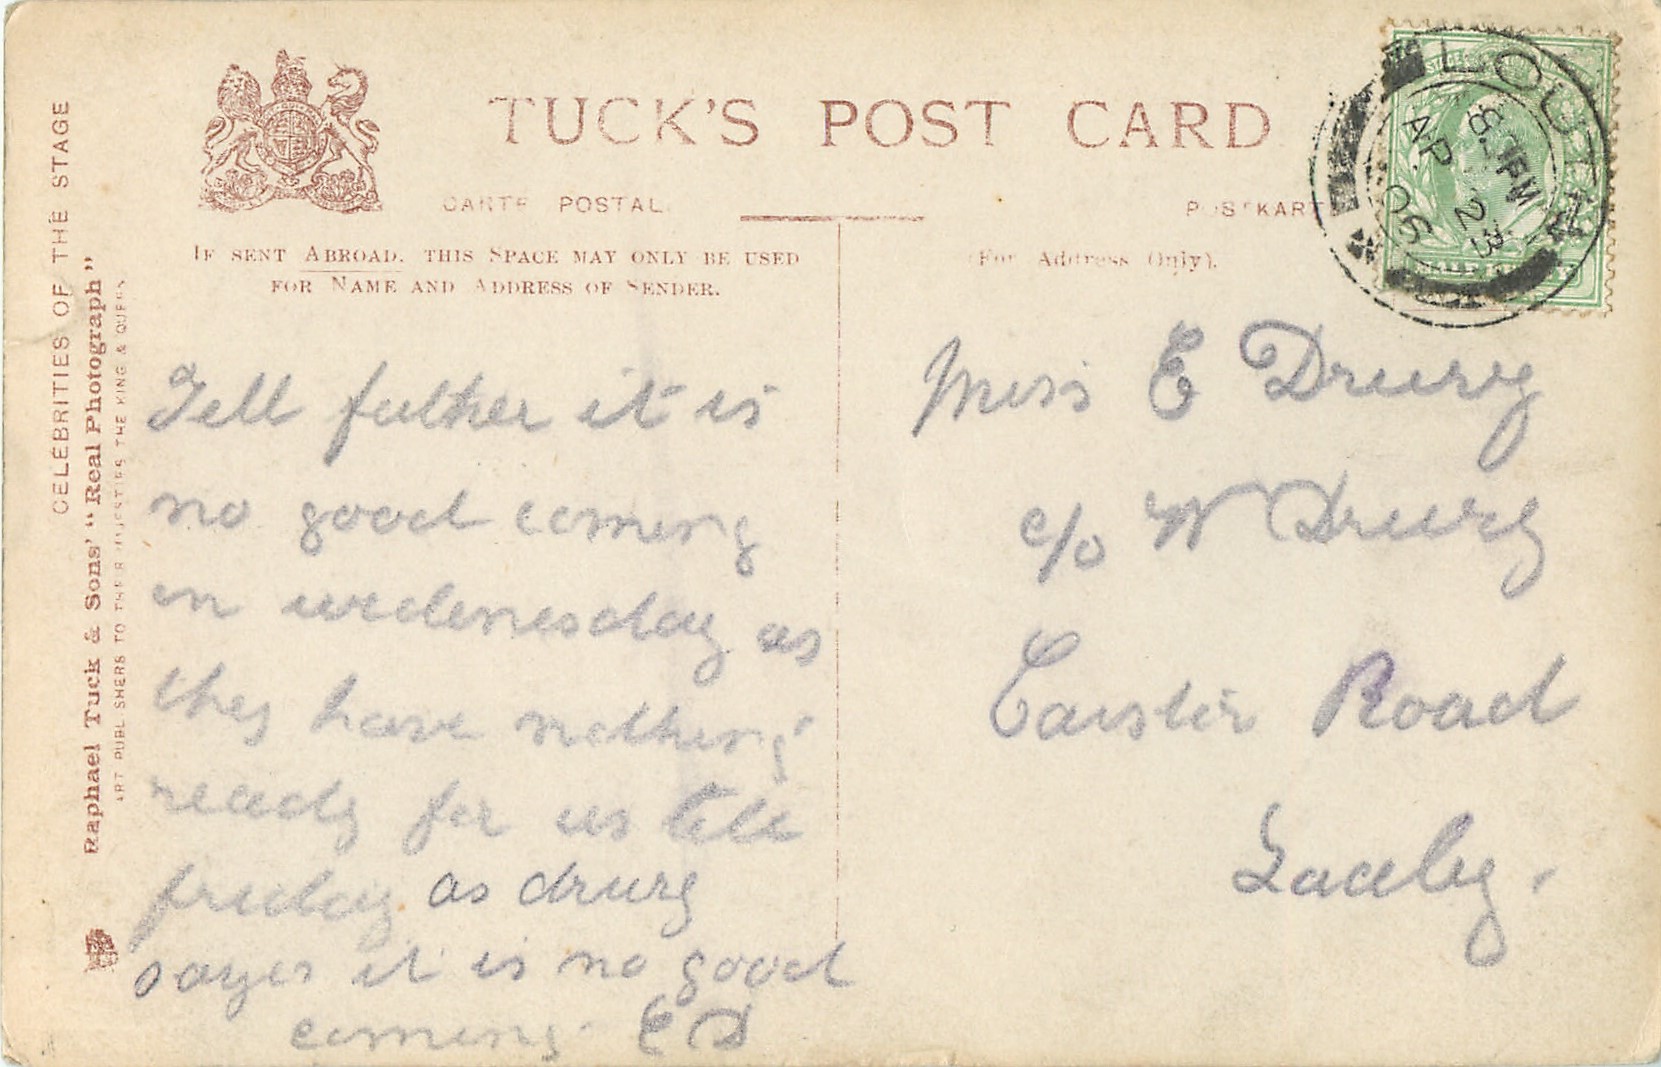 TUCK'S POST CARD
CARTE POSTALE
POSTKARTE
IF SENT ABROAD, THIS SPACE MAY ONLY BE USED
FOR NAME AND ADDRESS OF SENDER.
(For Address Only).
CELEBRITIES OF THE STAGE
Raphael Tuck & Sons' "Real Photograph"
ART PUBLISHERS TO THEIR MAJESTIES THE KING & QUEEN
LOUTH
8- PM
AP 23
06
Tell father it is
no good coming
on wedenesday as
they have nothing
ready for us till
friday as drury
sayes it is no good
coming E D
Miss E Drury
c/o W Drury
Caister Road
Laceby.